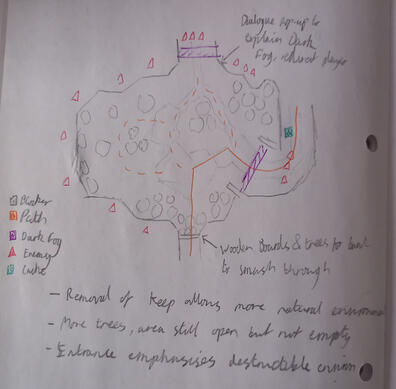 Dialogue pop-up to
explain Dark
Fog, redirect player
Blocker
Path
Dark Fog
Enemy
Cube
Wooden Boards & trees to
to smash through
- Removal of Keep allows more natural environment
- More trees, area still open but not empty
- Entrance emphasises destructible